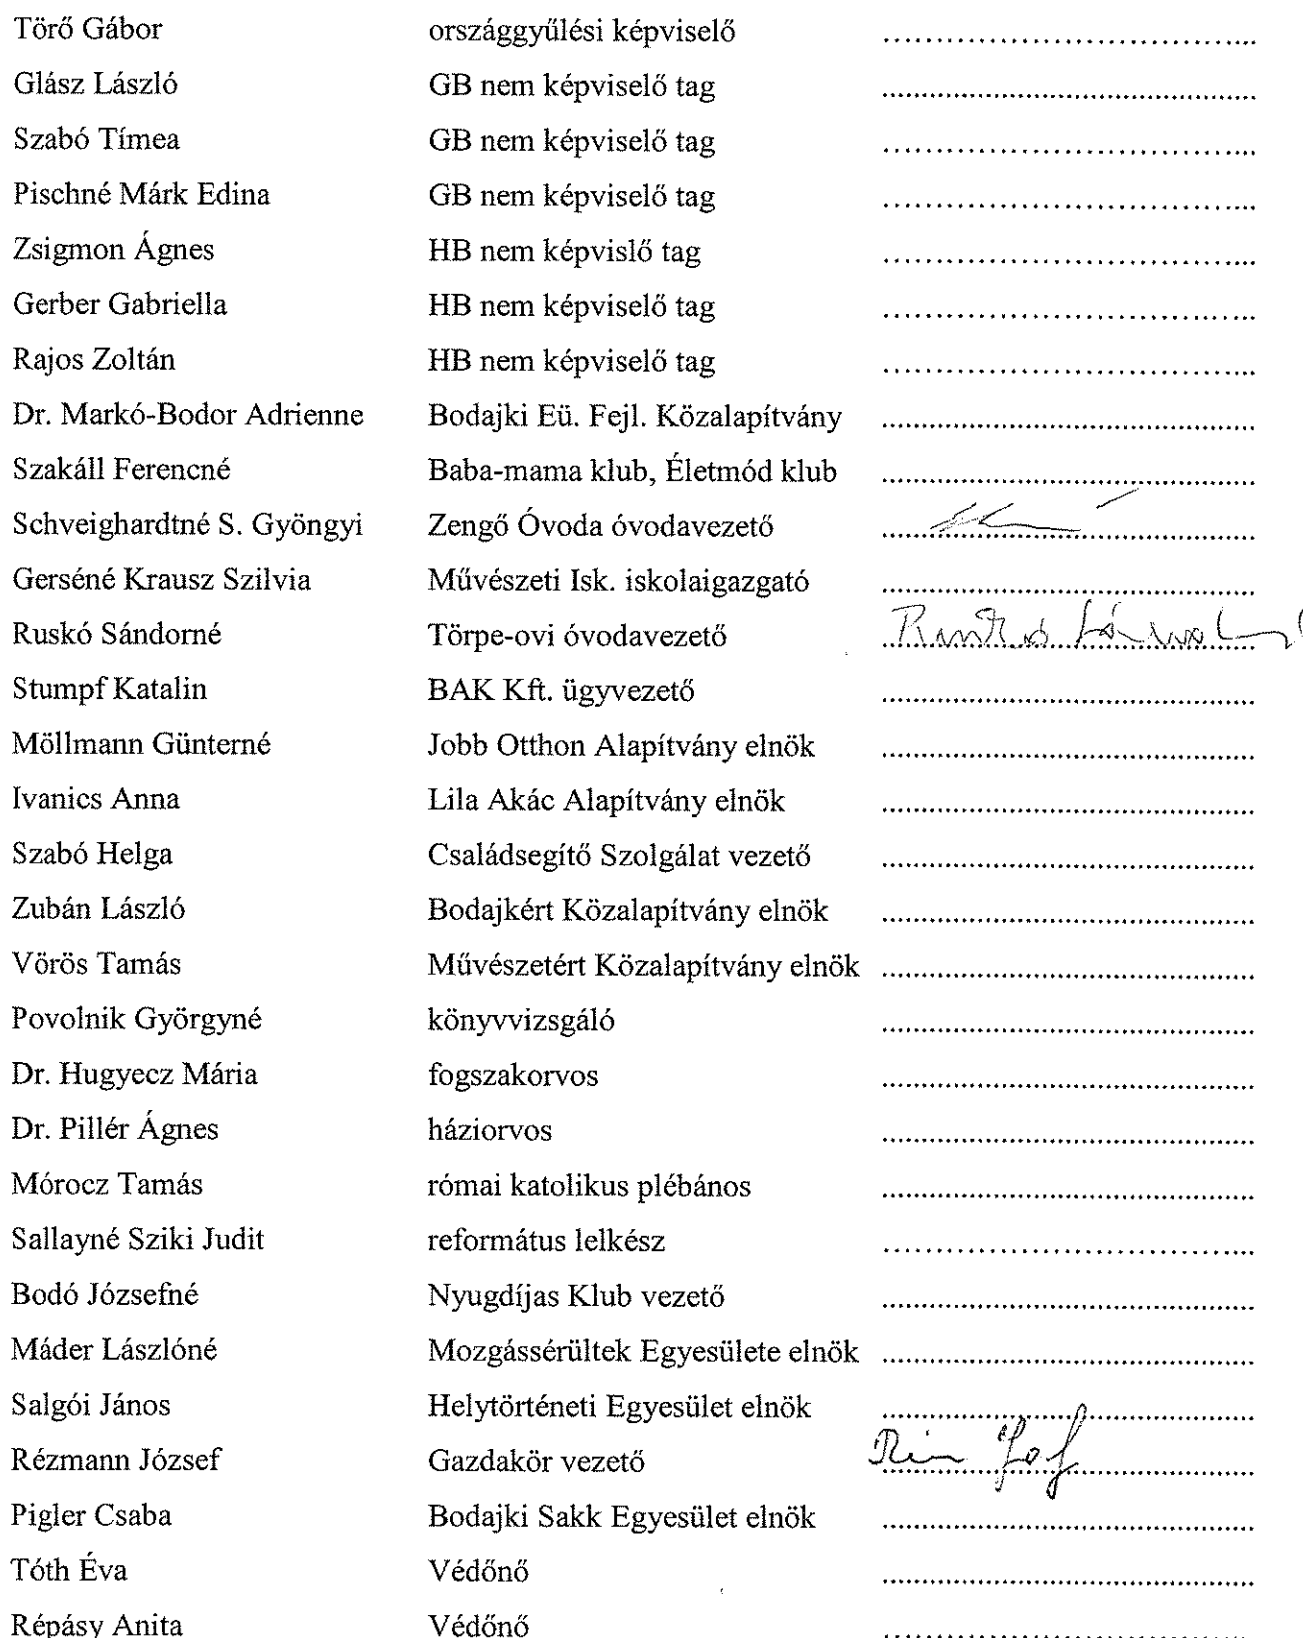 Törő Gábor országgyűlési képviselő ........................................
Glász László GB nem képviselő tag ........................................
Szabó Tímea GB nem képviselő tag ........................................
Pischné Márk Edina GB nem képviselő tag ........................................
Zsigmon Ágnes HB nem képvislő tag ........................................
Gerber Gabriella HB nem képviselő tag ........................................
Rajos Zoltán HB nem képviselő tag ........................................
Dr. Markó-Bodor Adrienne Bodajki Eü. Fejl. Közalapítvány ........................................
Szakáll Ferencné Baba-mama klub, Életmód klub ........................................
Schveighardtné S. Gyöngyi Zengő Óvoda óvodavezető ........................................
Gerséné Krausz Szilvia Művészeti Isk. iskolaigazgató ........................................
Ruskó Sándorné Törpe-ovi óvodavezető Ruskó Sándorné
Stumpf Katalin BAK Kft. ügyvezető ........................................
Möllmann Günterné Jobb Otthon Alapítvány elnök ........................................
Ivanics Anna Lila Akác Alapítvány elnök ........................................
Szabó Helga Családsegítő Szolgálat vezető ........................................
Zubán László Bodajkért Közalapítvány elnök ........................................
Vörös Tamás Művészetért Közalapítvány elnök ........................................
Povolnik Györgyné könyvvizsgáló ........................................
Dr. Hugyecz Mária fogszakorvos ........................................
Dr. Pillér Ágnes háziorvos ........................................
Mórocz Tamás római katolikus plébános ........................................
Sallayné Sziki Judit református lelkész ........................................
Bodó Józsefné Nyugdíjas Klub vezető ........................................
Máder Lászlóné Mozgássérültek Egyesülete elnök ........................................
Salgói János Helytörténeti Egyesület elnök ........................................
Rézmann József Gazdakör vezető ........................................
Pigler Csaba Bodajki Sakk Egyesület elnök ........................................
Tóth Éva Védőnő ........................................
Répásy Anita Védőnő ........................................